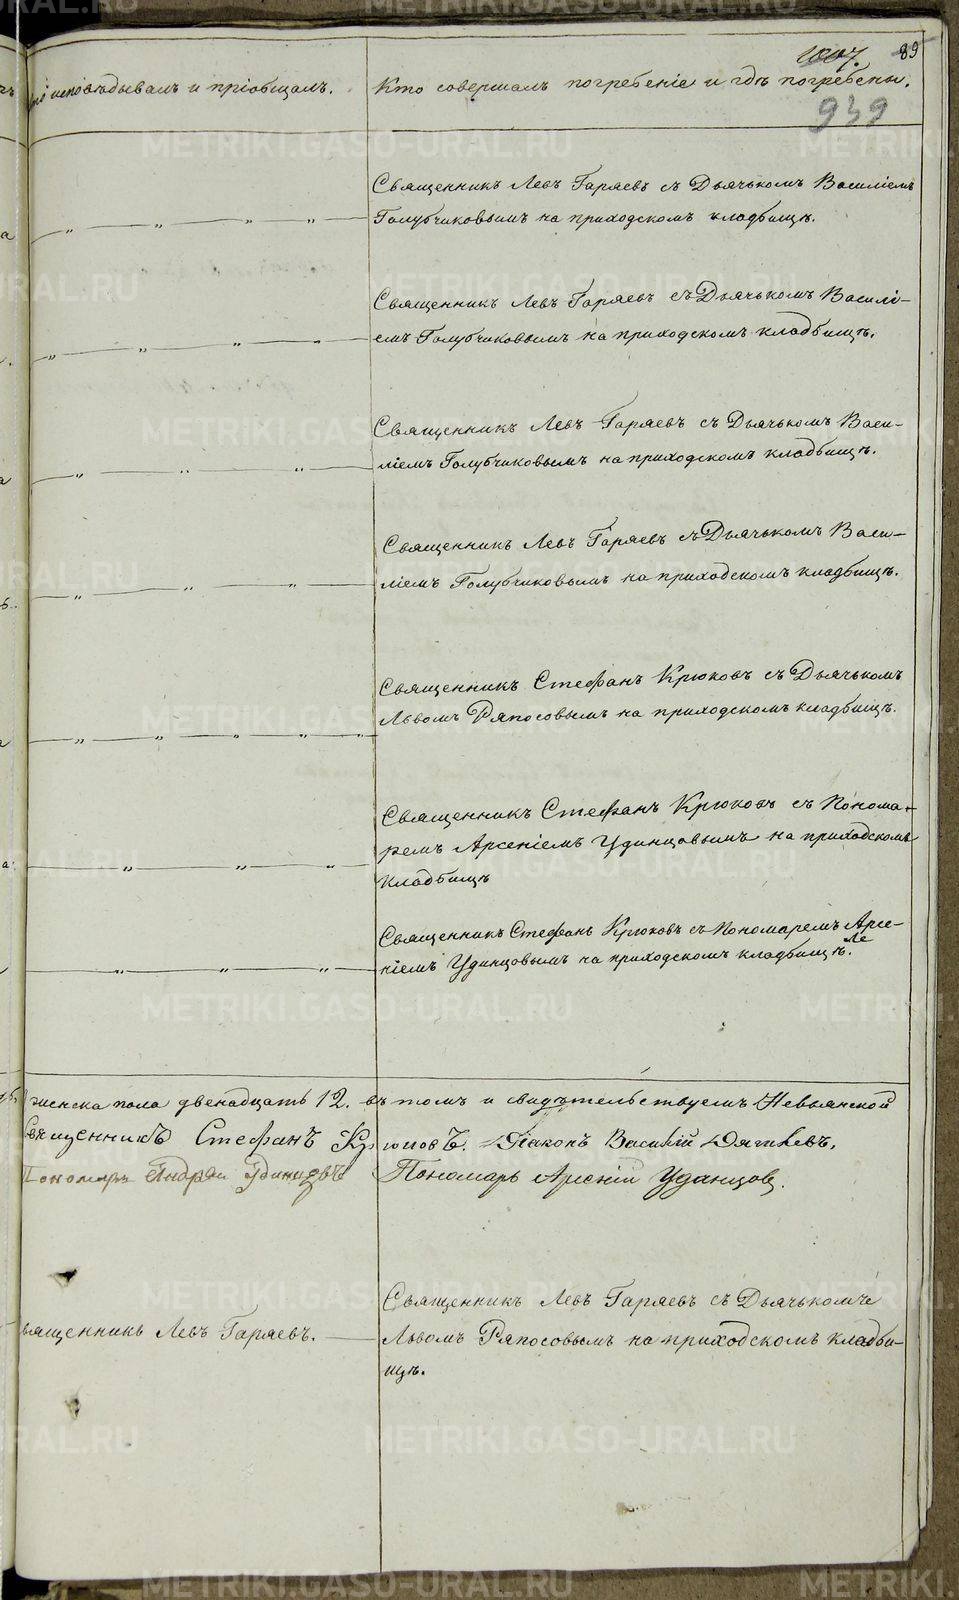 1007. 89
исповѣдывалъ и пріобщалъ. Кто совершалъ погребеніе и гдѣ погребены.
939
Священникъ Левъ Гаряевъ съ Дьячькомъ Василіемъ
Голубчиковымъ на приходскомъ кладбищѣ.
Священникъ Левъ Гаряевъ съ Дьячькомъ Василі-
емъ Голубчиковымъ на приходскомъ кладбищѣ.
Священникъ Левъ Гаряевъ съ Дьячькомъ Васи-
ліемъ Голубчиковымъ на приходскомъ кладбищѣ.
Священникъ Левъ Гаряевъ съ Дьячькомъ Васи-
ліемъ Голубчиковымъ на приходскомъ кладбищѣ.
Священникъ Стефанъ Крюковъ съ Дьячькомъ
Львомъ Ряпосовымъ на приходскомъ кладбищѣ.
Священникъ Стефанъ Крюковъ съ Понома-
ремъ Арсеніемъ Удинцовымъ на приходскомъ
кладбищѣ
Священникъ Стефанъ Крюковъ съ Пономаремъ Арсе-
ніемъ Удинцовымъ на приходскомъ кладбищѣ.
женска пола двенадцать 12. въ томъ и свидѣтельствуемъ Невьянской
Священникъ Стефанъ Крюковъ. Діаконъ Василій Дягилевъ.
Пономарь Андрей Удинцовъ Пономарь Арсеній Удинцовъ.
Священникъ Левъ Гаряевъ съ Дьячькомъ
вященникъ Левъ Гаряевъ. Львомъ Ряпосовымъ на приходскомъ кладби-
щѣ.
METRIKI.GASO-URAL.RU